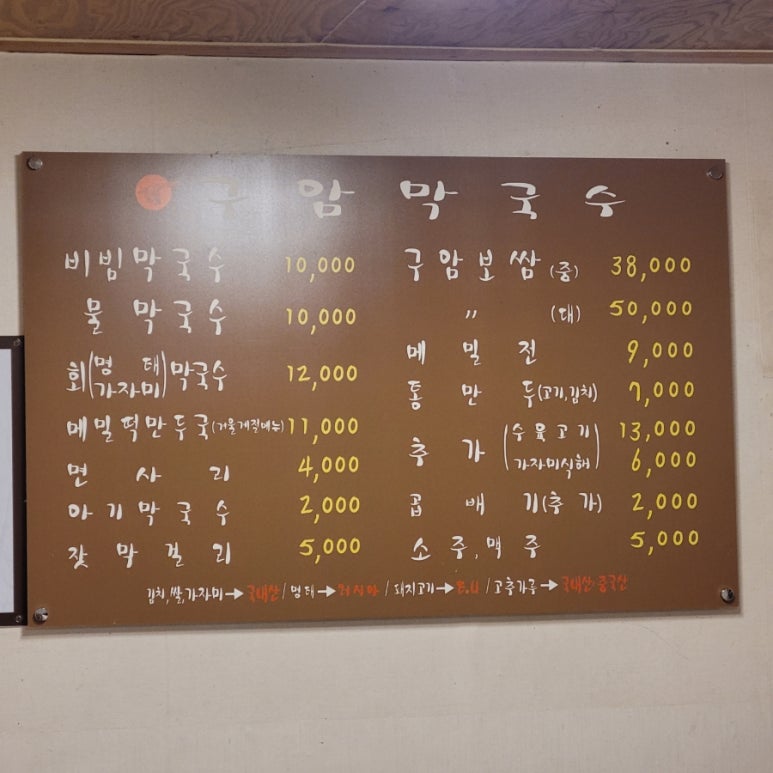 구 암 막 국 수
비빔막국수 10,000
물 막국수 10,000
회(명태 가자미)막국수 12,000
메밀떡만두국(겨울계절메뉴) 11,000
면 사 리 4,000
아기막국수 2,000
잣막걸리 5,000
구암보쌈(중) 38,000
〃 (대) 50,000
메 밀 전 9,000
통 만 두(고기,김치) 7,000
추 가 (수육고기 13,000
가자미식해) 6,000
곱 배 기(추 가) 2,000
소 주, 맥 주 5,000
김치,쌀,가자미→국내산/명태→러시아/돼지고기→E.U/고추가루→국내산·중국산